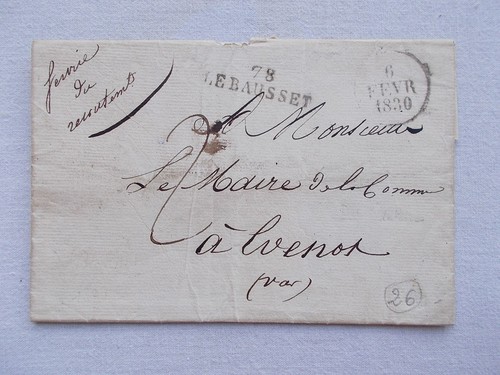 service
du
recrutemt
78
LE BAUSSET
6
FEVR
1830
A Monsieur
Le Maire de la Commune
à Evenos
(var)
26